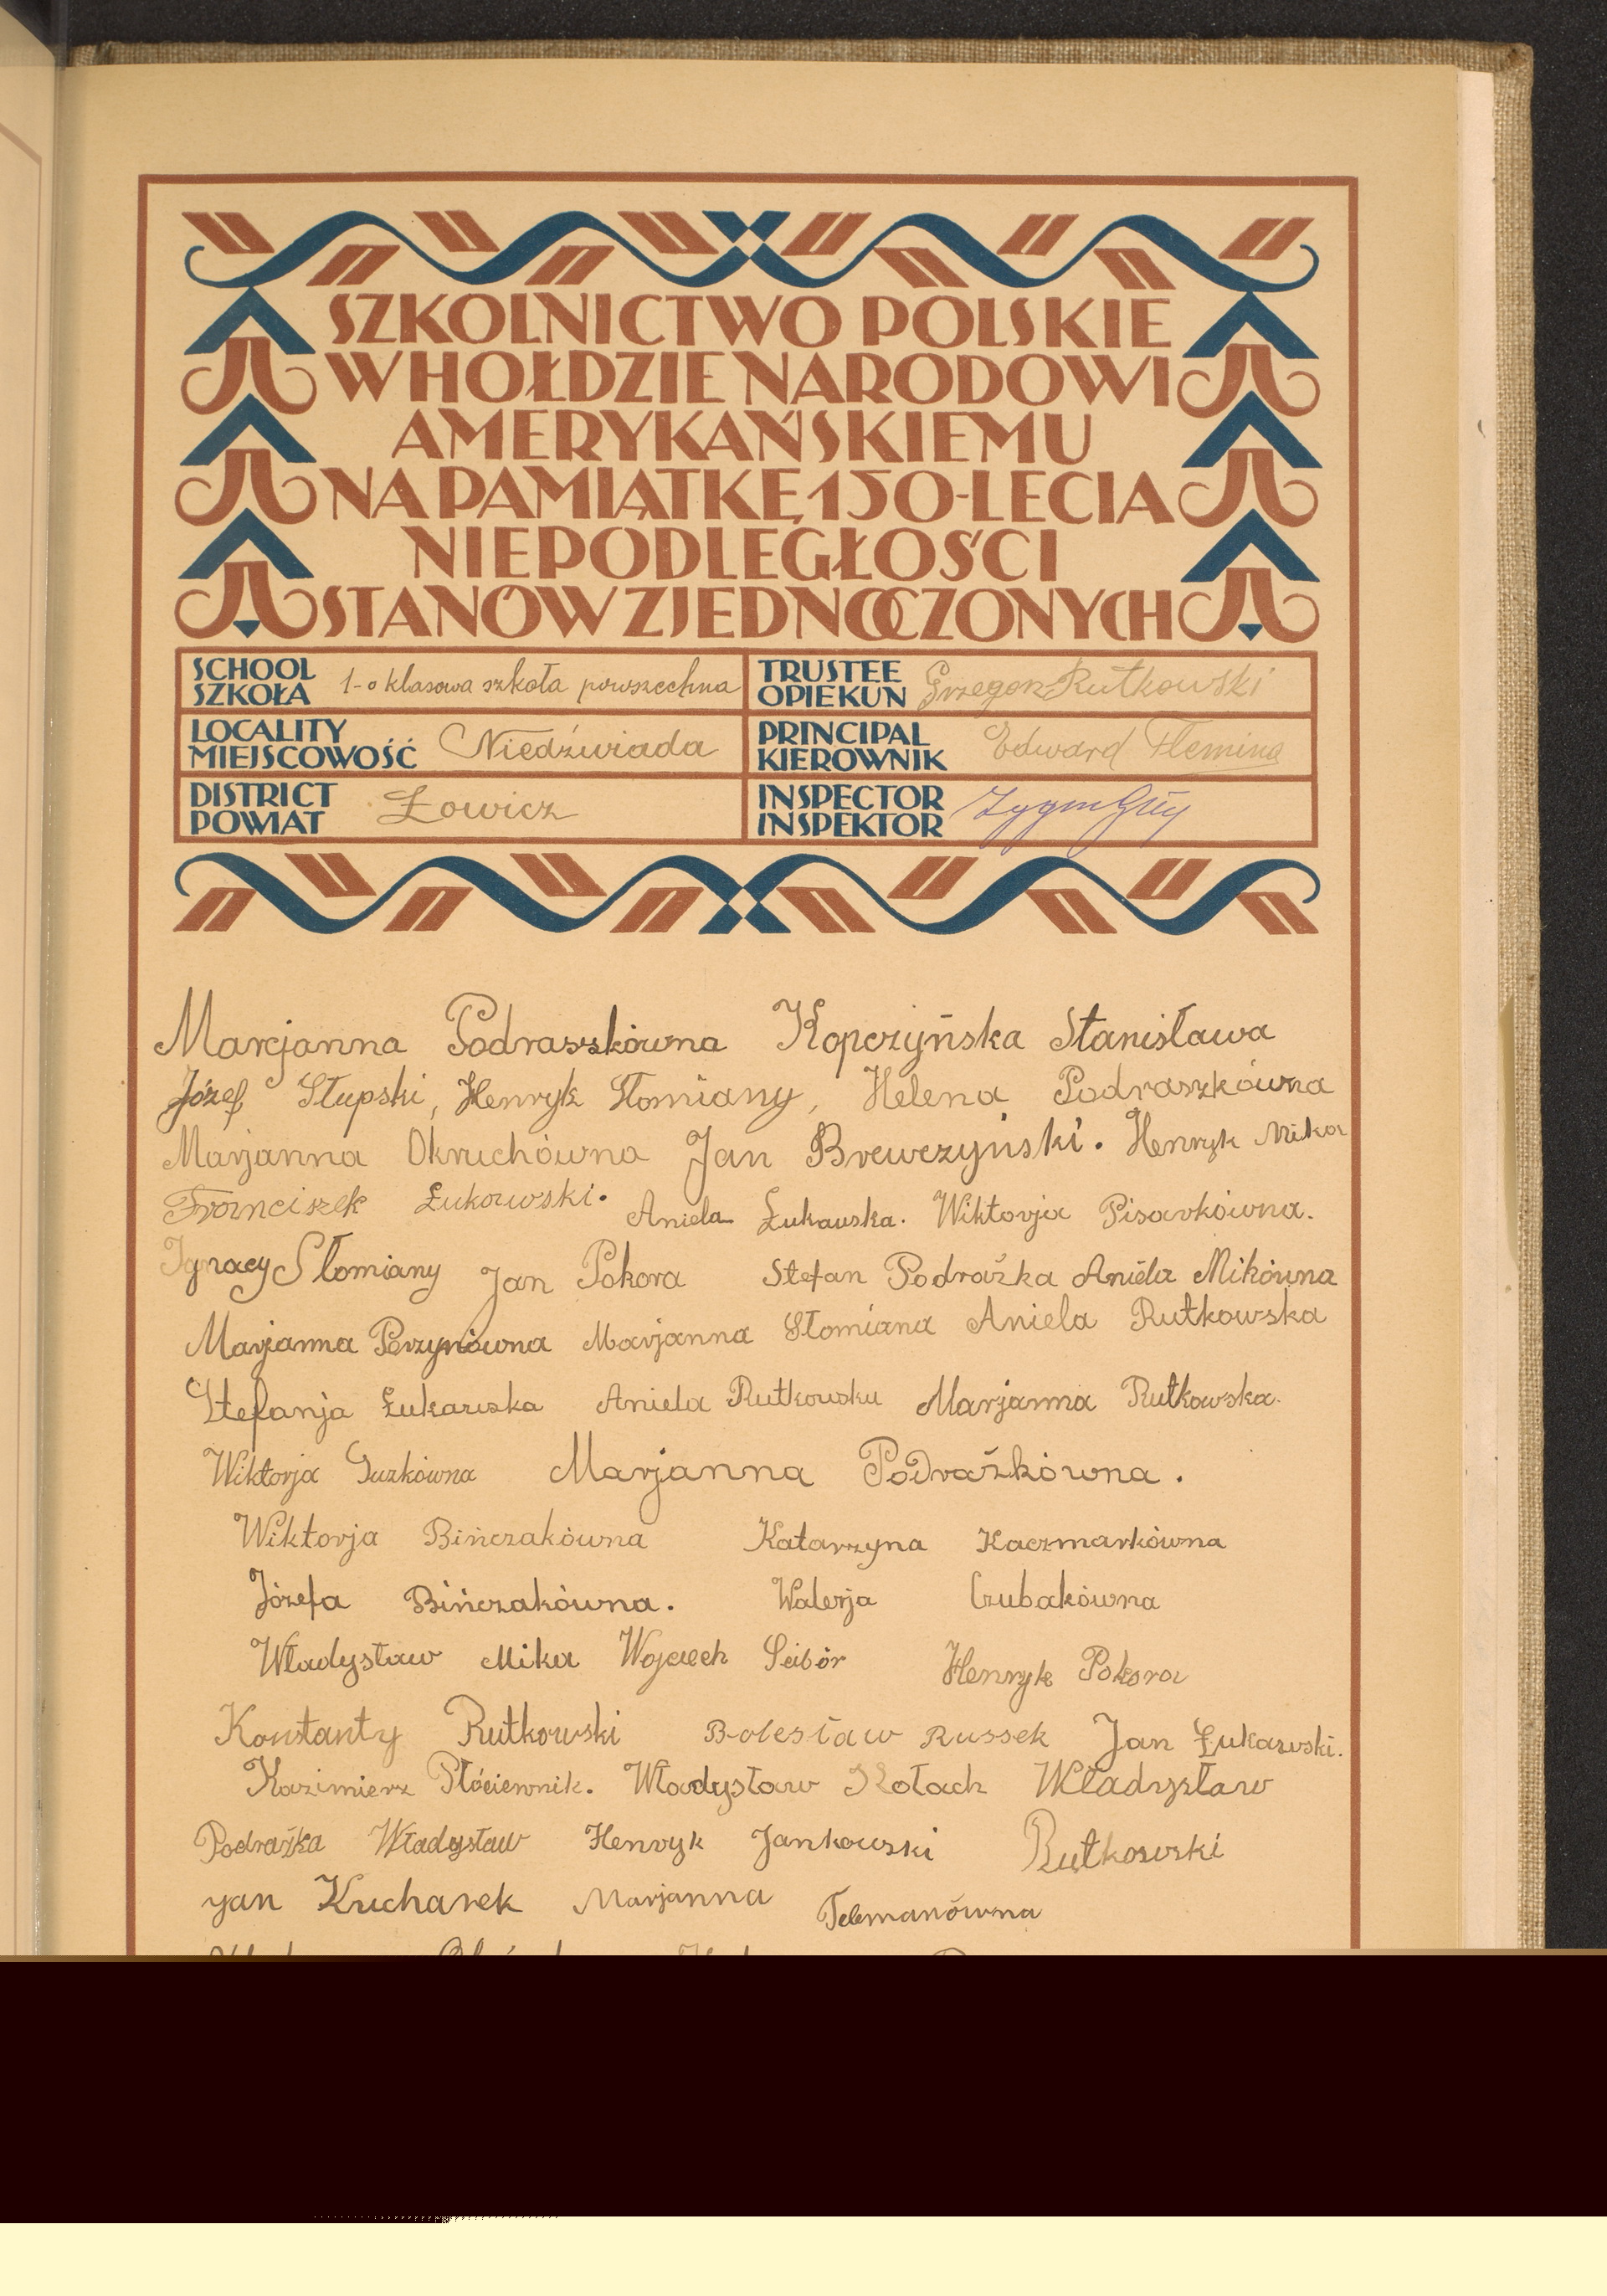 SZKOLNICTWO POLSKIE
W HOŁDZIE NARODOWI
AMERYKAŃSKIEMU
NA PAMIĄTKĘ 150-LECIA
NIEPODLEGŁOŚCI
STANÓW ZJEDNOCZONYCH
SCHOOL
SZKOŁA 1-o klasowa szkoła powszechna
TRUSTEE
OPIEKUN Grzegorz Rutkowski
LOCALITY
MIEJSCOWOŚĆ Niedźwiada
PRINCIPAL
KIEROWNIK Edward Fleming
DISTRICT
POWIAT Łowicz
INSPECTOR
INSPEKTOR
Marjanna Podraszkówna Kopczyńska Stanisława
Józef Słupski, Henryk Słomiany, Helena Podraszkówna
Marjanna Okruchówna Jan Brewczyński. Henryk Mika
Franciszek Łukowski. Aniela Łukawska. Wiktorja Pisarkówna.
Ignacy Słomiany Jan Pokora Stefan Podrażka Aniela Mikówna
Marjanna Perzynówna Marjanna Słomiana Aniela Rutkowska
Stefanja Łukawska Aniela Rutkowska Marjanna Rutkowska.
Wiktorja Guzkówna Marjanna Podrażkówna.
Wiktorja Bińczakówna Katarzyna Kaczmarkówna
Józefa Bińczakówna. Walerja Czubakówna
Władysław Mika Wojciech Ścibór Henryk Pokora
Konstanty Rutkowski Bolesław Russek Jan Łukawski.
Kazimierz Płóciennik. Władysław Kołach Władysław
Podrażka Władysław Henryk Jankowski Rutkowski
Jan Kucharek Marjanna Telemanówna